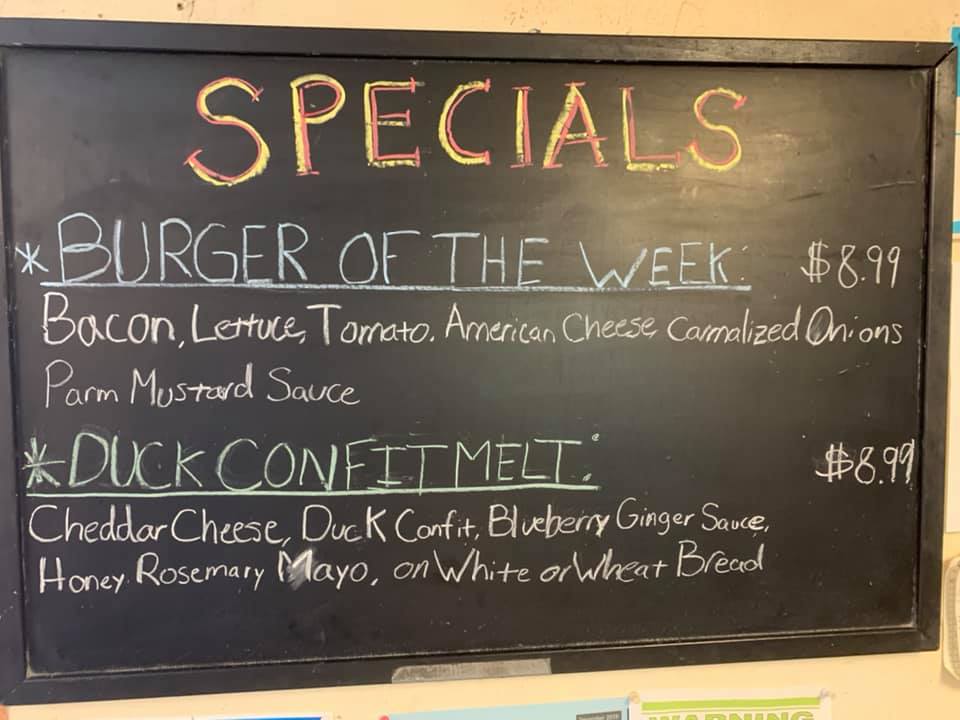 SPECIALS
*BURGER OF THE WEEK: $8.99
Bacon, Lettuce, Tomato. American Cheese Carmalized Onions
Parm Mustard Sauce
*DUCK CONFIT MELT: $8.99
Cheddar Cheese, Duck Confit, Blueberry Ginger Sauce,
Honey Rosemary Mayo, on White or Wheat Bread
WARNING